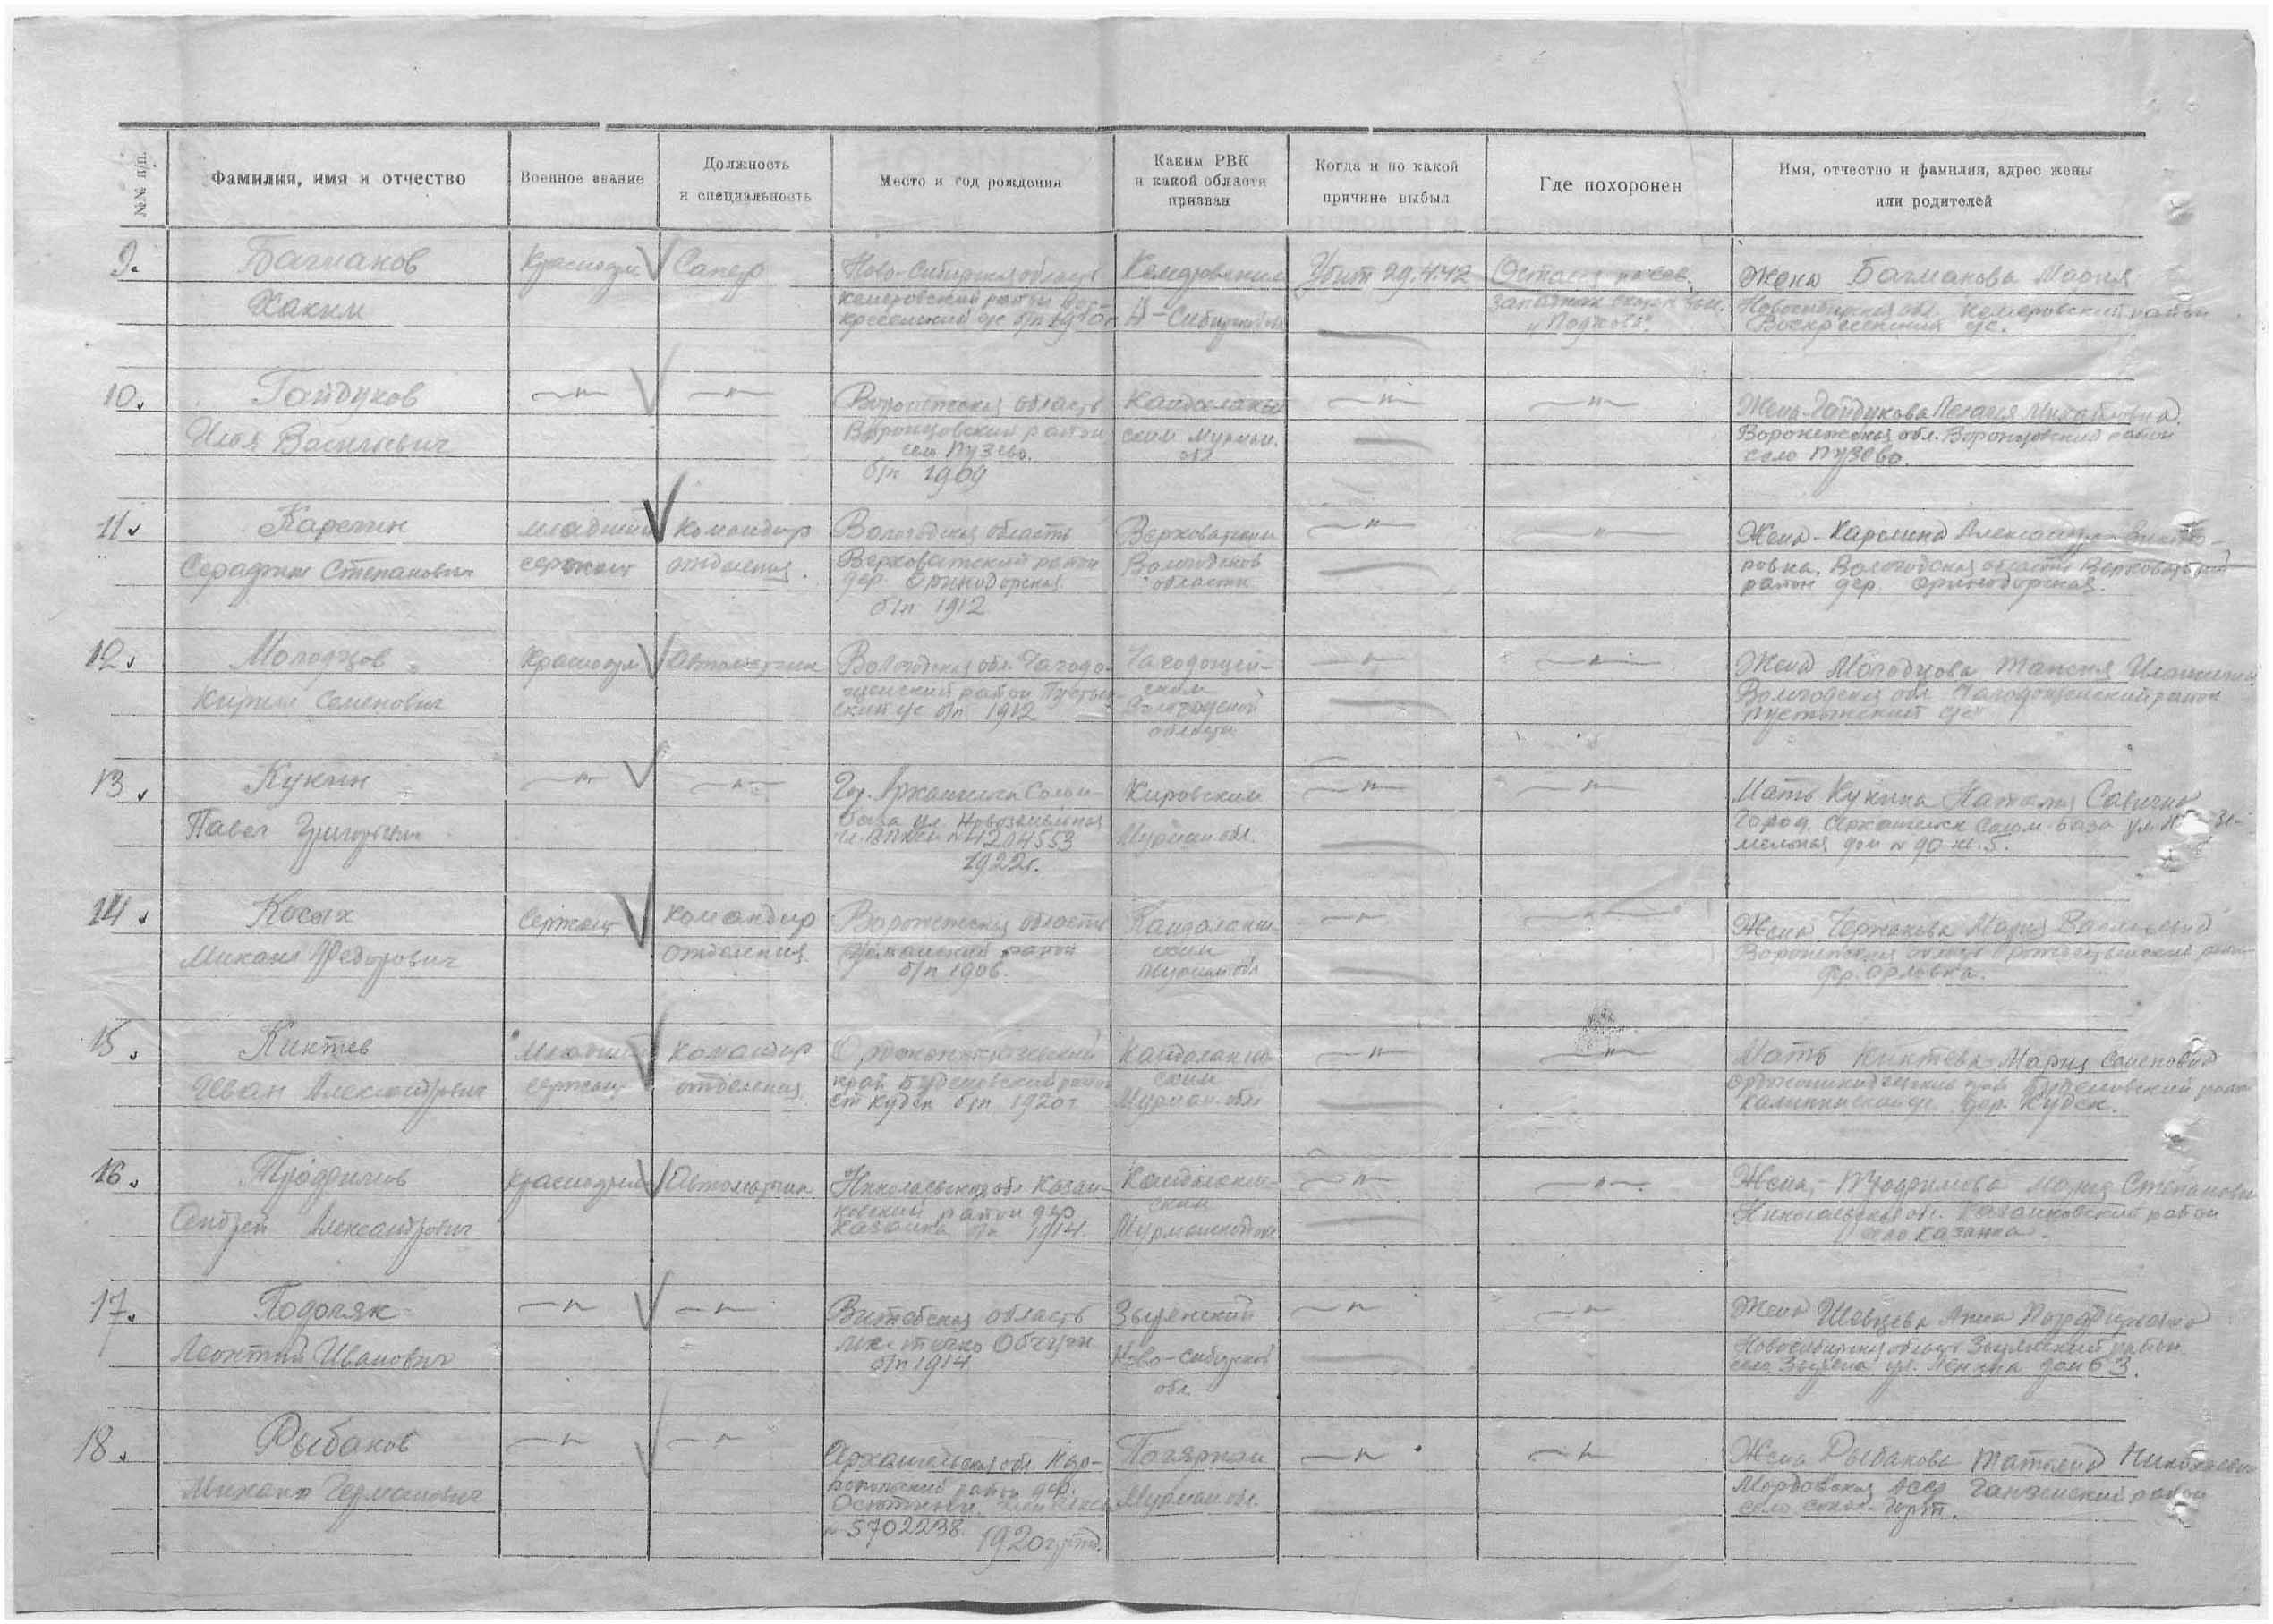 №№ п/п.
Фамилия, имя и отчество
Военное звание
Должность
и специальность
Место и год рождения
Каким РВК
и какой области
призван
Когда и по какой
причине выбыл
Где похоронен
Имя, отчество и фамилия, адрес жены
или родителей
9.
Багманов
Хаким
Красноарм
Сапер
Ново-Сибирская область
Кемеровский район Вос-
кресенский с/с б/п 1910г
Кемеровским
Н-Сибирской
Убит 29.4.42
Жена Багманова Мария
Новосибирская обл. Кемеровский район
Воскресенский с/с.
10.
Гайдуков
Илья Васильевич
—"—
—"—
Воронежская область
Воронцовский район
село Пузево.
б/п 1909
Кандалакш
ским Мурман.
обл
—"—
—"—
Жена Гайдукова Пелагея Михайловна.
Воронежская обл. Воронцовский район
село Пузево.
11
Карелин
Серафим Степанович
младший
сержант
Командир
отделения.
Вологодская область
Верховажский район
дер.
б/п 1912
Верховажским
Вологодской
области
—"—
—"—
Жена - Карелина Александра
ровна, Вологодская область Верховажский
район дер.
12.
Молодцов
Кирилл Семенович
Красноарм
Автоматчик
Вологодская обл. Чагодо-
щенский район Пустын-
ский с/с б/п 1912
Чагодощен-
ским
Вологодской
области
—"—
—"—
Жена Молодцова Таисия
Вологодская обл Чагодощенский район
Пустынский с/с
13.
Кукин
Павел Григорьевич
—"—
—"—
Гор. Архангельск Солом-
база ул. Новоземельная
№ 4204553
1922г.
Кировским
Мурман обл.
—"—
—"—
Мать Кукина Наталия Савична
Город. Архангельск Солом-база ул.
мельная дом № 90 кв. 5.
14.
Косых
Михаил Федорович
Сержант
Командир
отделения
Воронежская область
район
б/п 1906.
Кандалакш-
ским
Мурман обл
—"—
—"—
Жена Чернакова Мария Васильевна
Воронежская область
дер. Орловка.
15.
Киктев
Иван Александрович
Младший
сержант
Командир
отделения
Орджоникидзевский
край Буденовский район
б/п 1920г
Кандалакш
ским
Мурман. обл
—"—
—"—
Мать Киктева Мария Семеновна
Орджоникидзевский край Буденовский район
16.
Трофимов
Андрей Александрович
Красноарм
Автоматчик
Николаевская обл Казан-
ковский район дер
Казанка б/п 1914.
Кандалакш-
ским
Мурманской обл.
—"—
—"—
Жена, - Трофимова Мария Степановна
Николаевская обл. Казанковский район
село Казанка.
17.
Подоляк
Леонтий Иванович
—"—
—"—
Витебская область
местечко Обчуги
б/п 1914
Ново-Сибирской
обл
—"—
—"—
Жена Шевцева Анна
Новосибирская область район
ул. Ленина дом 63.
18.
Рыбаков
Михаил Германович
—"—
—"—
Архангельская обл.
район дер.
№ 5702238. 1920г рожд.
Полярным
Мурман обл.
—"—
—"—
Жена Рыбакова Татьяна Николаевна
Мордовская АССР район
село